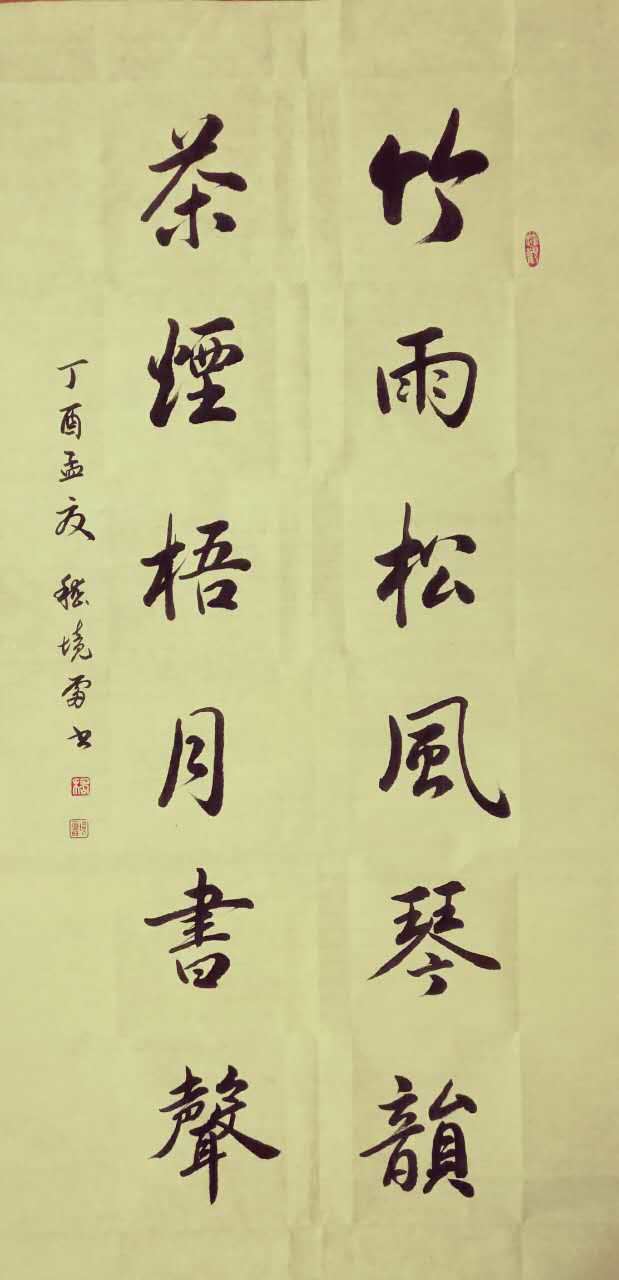 竹雨松風琴韻
茶煙梧月書聲
丁酉孟夏 嵇境雷书